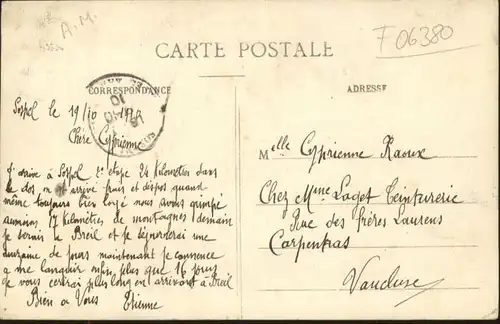 A.M.
F 06380
CARTE POSTALE
CORRESPONDANCE
ADRESSE
Sospel le 19/10
Chère Cyprienne
J'arrive à Sospel 2e etape 24 Kilometres dans
le dos on est arrivé frais et dispos quand
même toujours bien logé nous avons grimpé
17 Kilometres de montagnes demain
je serais à Breil et je séjournerai une
de jours maintenant je commence
a me languir enfin plus que 16 jours
je vous plus long en arrivant à Breil
Bien a Vous Etienne
Melle Cyprienne Raoux
Chez Mme Laget Teinturerie
Rue des Frères Laurens
Carpentras
Vaucluse